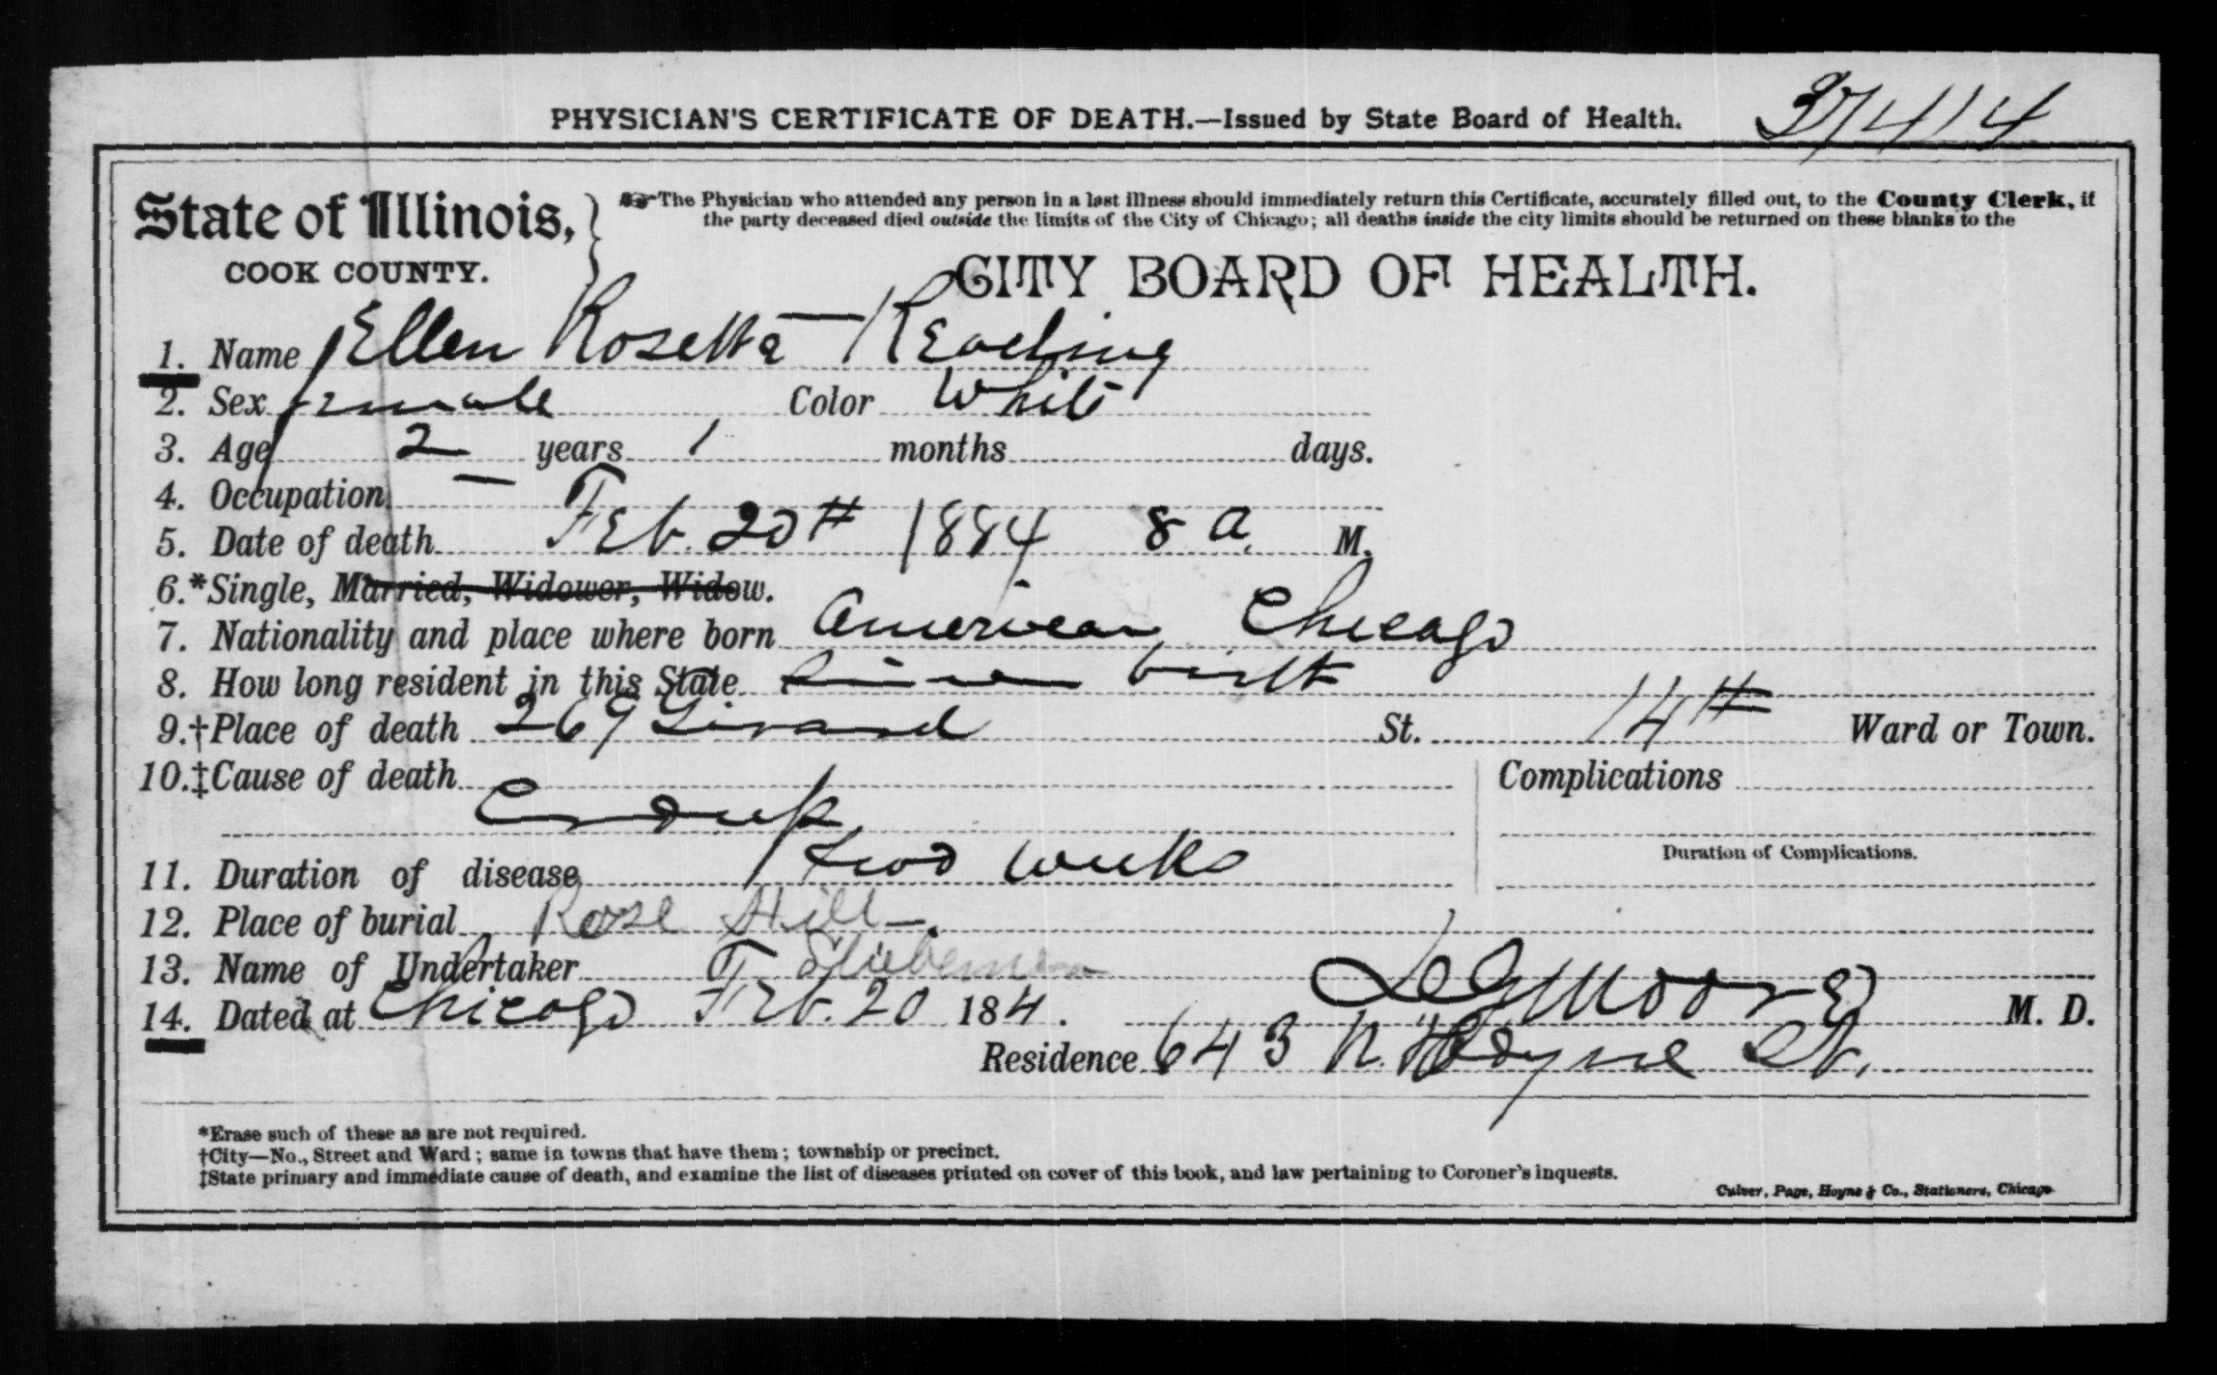 PHYSICIAN'S CERTIFICATE OF DEATH.—Issued by State Board of Health. 37414
State of Illinois, } ☞The Physician who attended any person in a last illness should immediately return this Certificate, accurately filled out, to the County Clerk, if
the party deceased died outside the limits of the City of Chicago; all deaths inside the city limits should be returned on these blanks to the
COOK COUNTY. CITY BOARD OF HEALTH.
1. Name Ellen Rosetta Keading
2. Sex female Color White
3. Age 2 years 1 months days.
4. Occupation —
5. Date of death Feb. 20th 1884 8 a. M.
6.*Single, Married, Widower, Widow.
7. Nationality and place where born American Chicago
8. How long resident in this State Since birth
9.†Place of death 269 Girard St. 14th Ward or Town.
10.‡Cause of death Complications
Croup
Duration of Complications.
11. Duration of disease two weeks
12. Place of burial Rose Hill
13. Name of Undertaker F.
14. Dated at Chicago Feb. 20 1884. Moore M. D.
Residence 643 N. Hoyne St.
*Erase such of these as are not required.
†City—No., Street and Ward; same in towns that have them; township or precinct.
‡State primary and immediate cause of death, and examine the list of diseases printed on cover of this book, and law pertaining to Coroner's inquests.
Culver, Page, Hoyne & Co., Stationers, Chicago